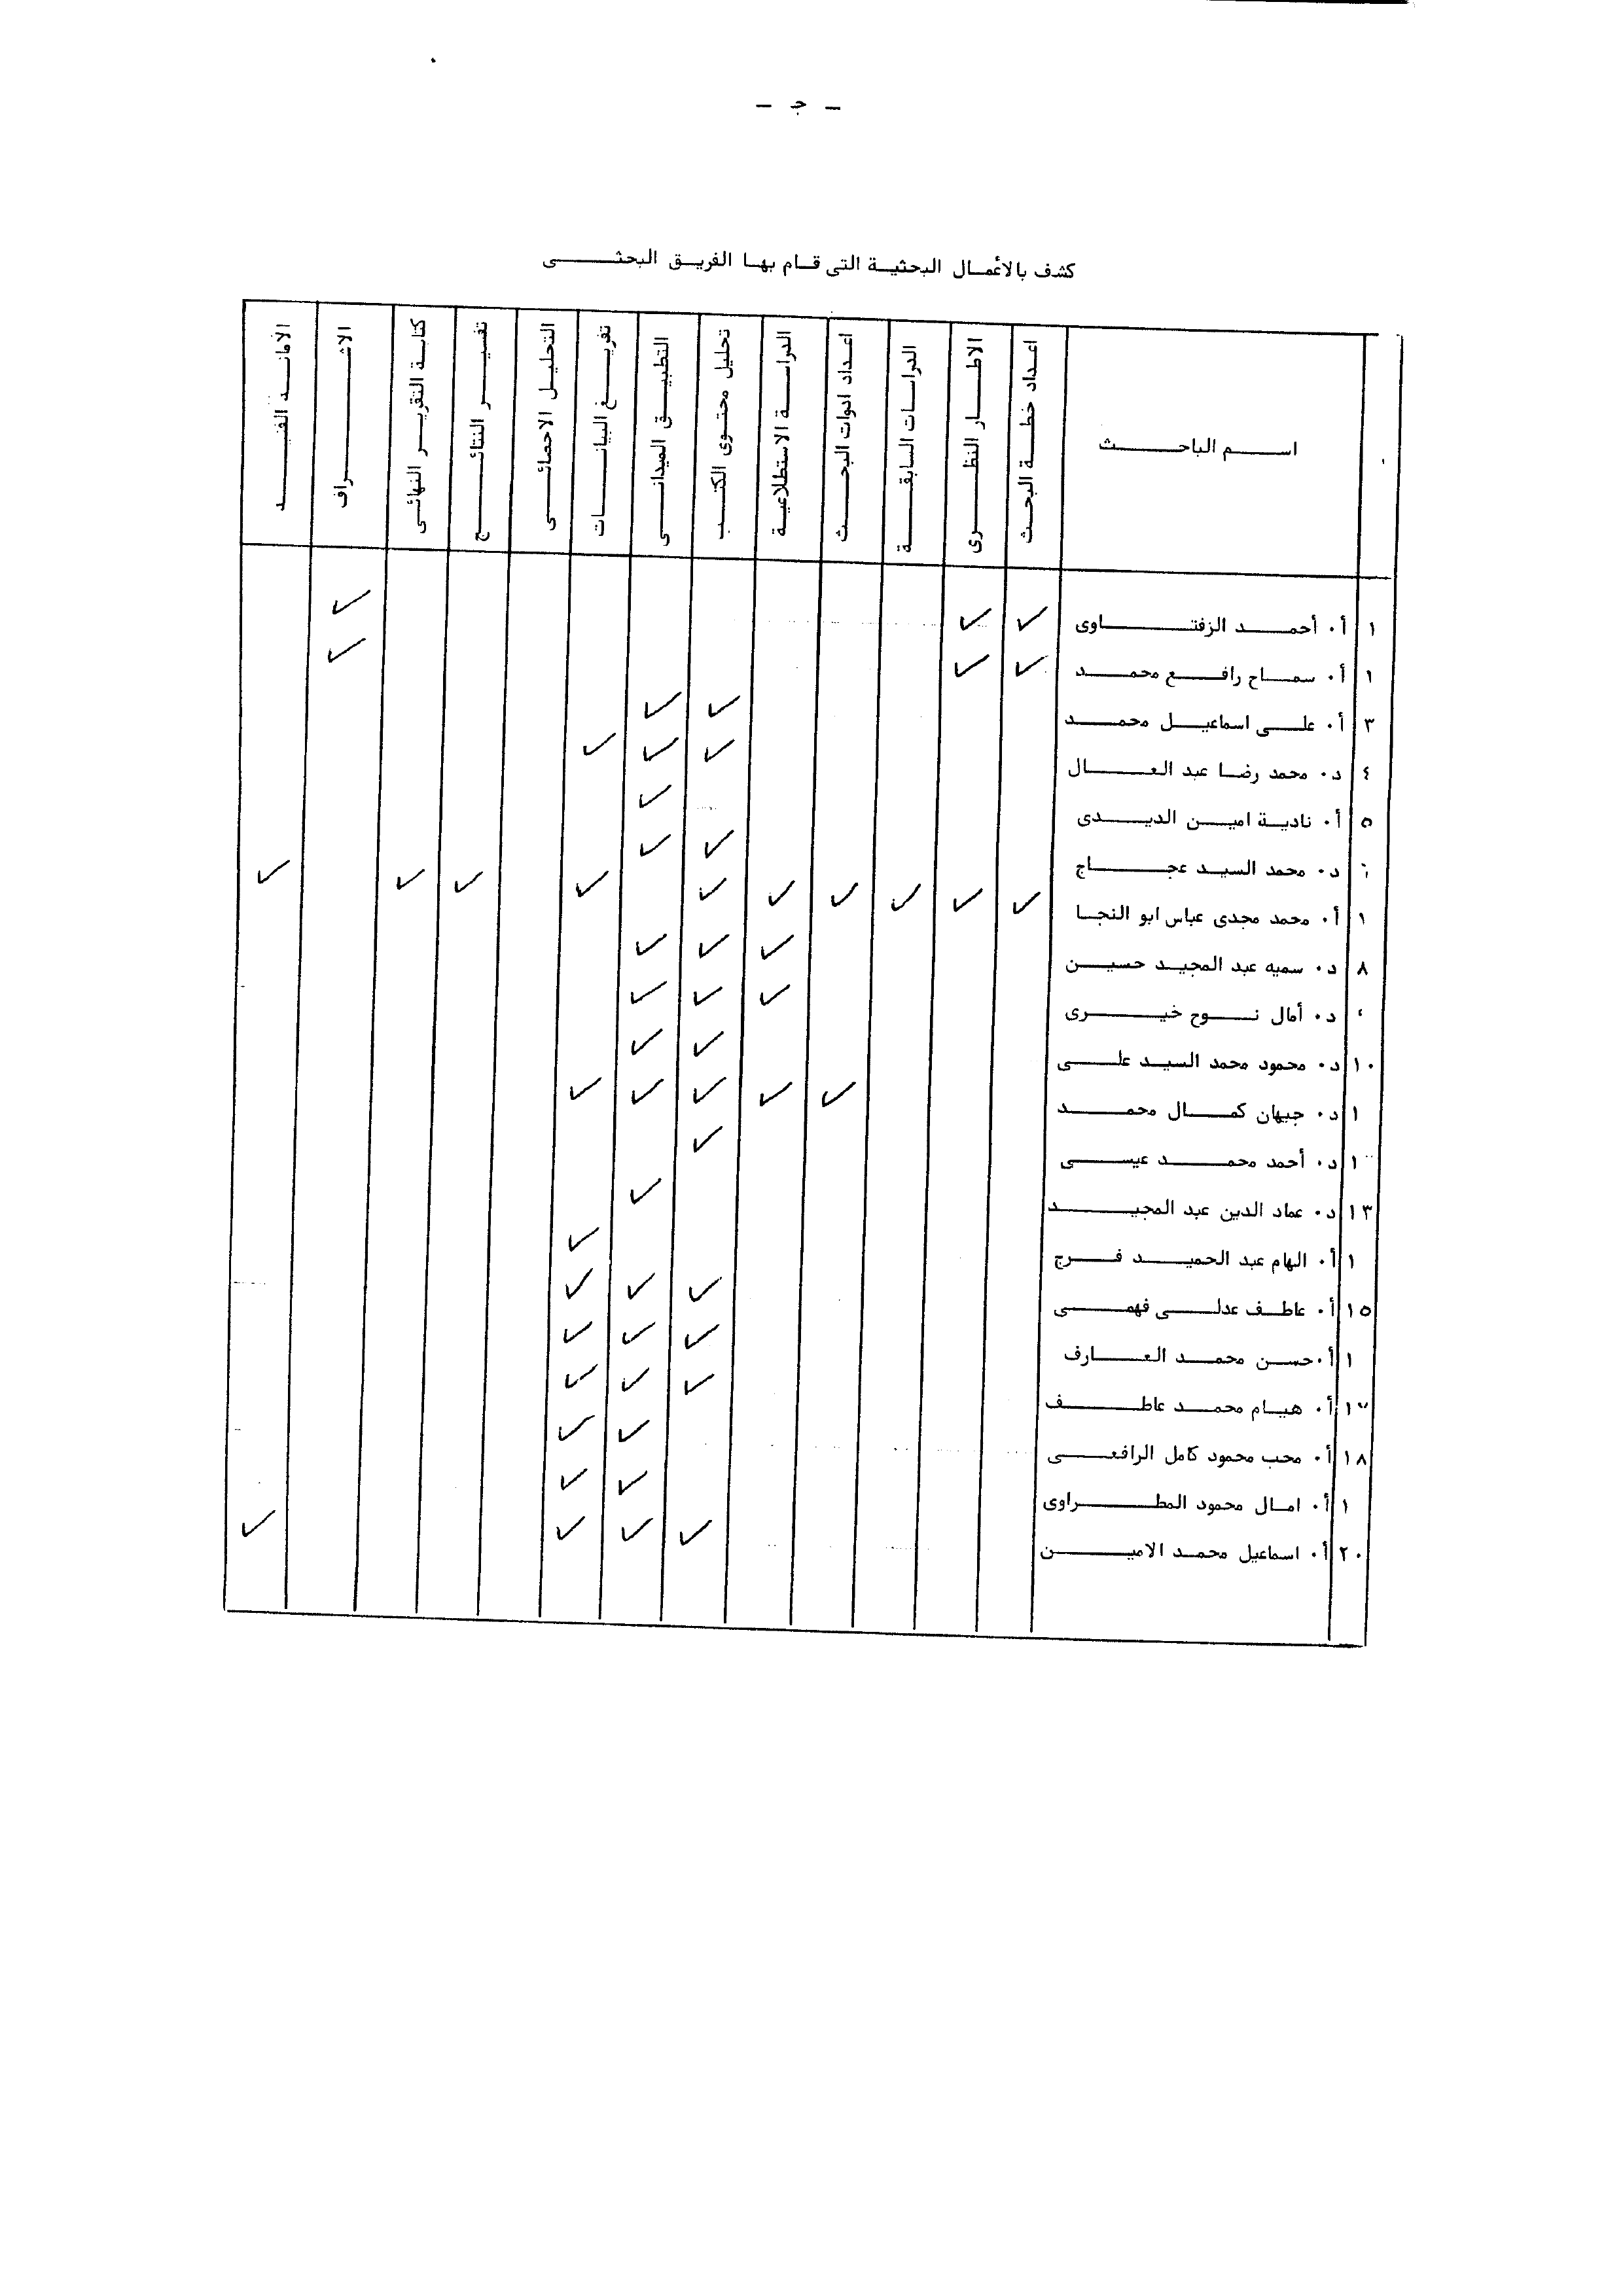 - جـ -
كشف بالأعمال البحثية التى قام بها الفريق البحثى
اسم الباحث
اعداد خطة البحث
الاطار النظرى
الدراسات السابقة
اعداد ادوات البحث
الدراسة الاستطلاعية
تحليل محتوى الكتب
التطبيق الميدانى
تفريغ البيانات
التحليل الاحصائى
تفسير النتائج
كتابة التقرير النهائى
الاشراف
١ أ٠ أحمد الزفتاوى ✓ ✓ ✓
١ أ٠ سماح رافع محمد ✓ ✓ ✓
٣ أ٠ على اسماعيل محمد ✓ ✓
٤ د٠ محمد رضا عبد العال ✓ ✓ ✓
٥ أ٠ نادية امين الديدى ✓
د٠ محمد السيد عجاج ✓ ✓
١ أ٠ محمد مجدى عباس ابو النجا ✓ ✓ ✓ ✓ ✓ ✓ ✓ ✓ ✓ ✓
٨ د٠ سميه عبد المجيد حسين ✓ ✓ ✓
د٠ أمال نوح خيرى ✓ ✓ ✓
١٠ د٠ محمود محمد السيد على ✓ ✓
١ د٠ جيهان كمال محمد ✓ ✓ ✓ ✓ ✓
١ د٠ أحمد محمد عيسى ✓
١٣ د٠ عماد الدين عبد المجيد ✓
١ أ٠ الهام عبد الحميد فرج ✓
١٥ أ٠ عاطف عدلى فهمى ✓ ✓ ✓
١ أ٠ حسن محمد العارف ✓ ✓ ✓
١ أ٠ هيام محمد عاطف ✓ ✓ ✓
١٨ أ٠ محب محمود كامل الرافعى ✓ ✓
١ أ٠ امال محمود المطراوى ✓ ✓
٢٠ أ٠ اسماعيل محمد الامين ✓ ✓ ✓ ✓